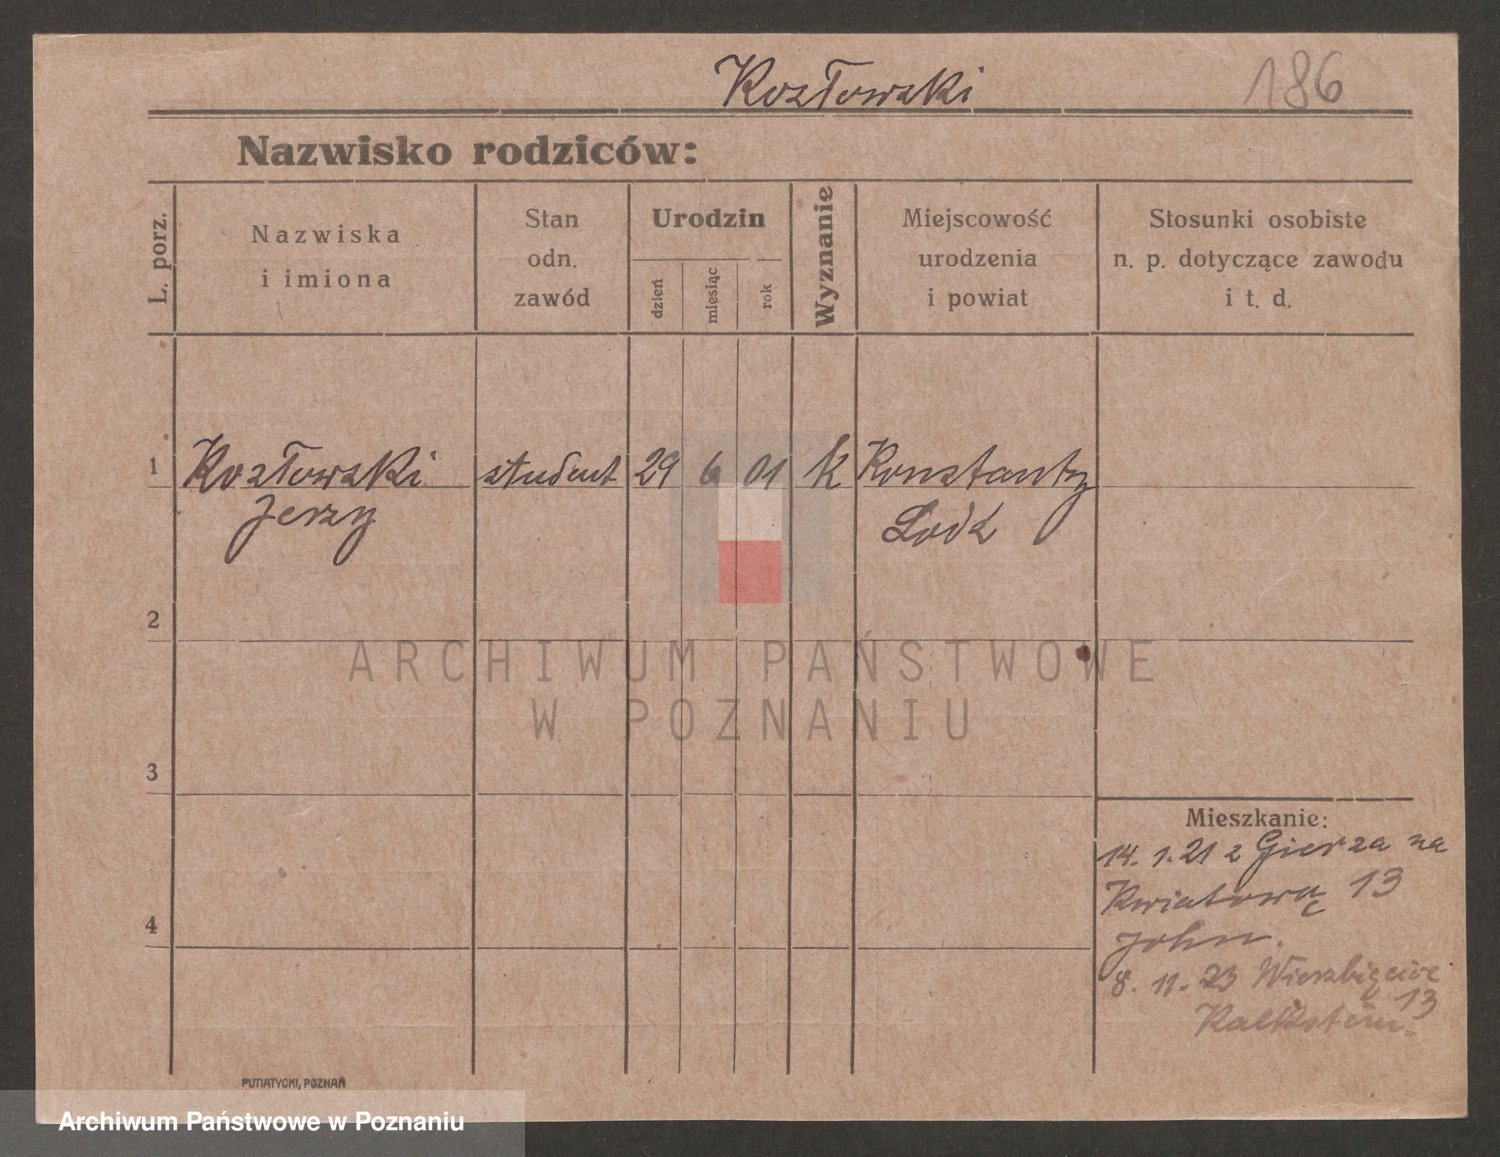 Kozłowski 186
Nazwisko rodziców:
L. porz.
Nazwiska
i imiona
Stan
odn.
zawód
Urodzin
dzień
miesiąc
rok
Wyznanie
Miejscowość
urodzenia
i powiat
Stosunki osobiste
n. p. dotyczące zawodu
i t. d.
1 Kozłowski student 29 6 01 k Konstanty
Jerzy Lodz
2
ARCHIWUM PAŃSTWOWE
W POZNANIU
3
Mieszkanie:
14. 1. 21 z Gierza na
Kwiatową 13
John.
4
8. 11. 23 Wierzbięcice
13
Kalkstein.
PUTIATYCKI, POZNAŃ
Archiwum Państwowe w Poznaniu